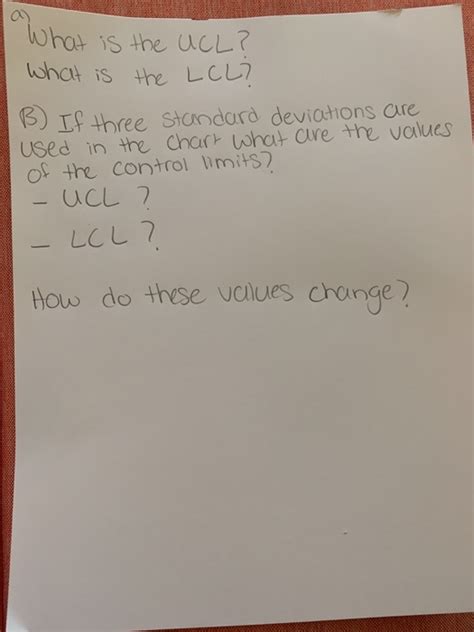 a)
What is the UCL?
What is the LCL?
B) If three standard deviations are
used in the chart what are the values
of the control limits?
- UCL ?
- LCL ?
How do these values change?